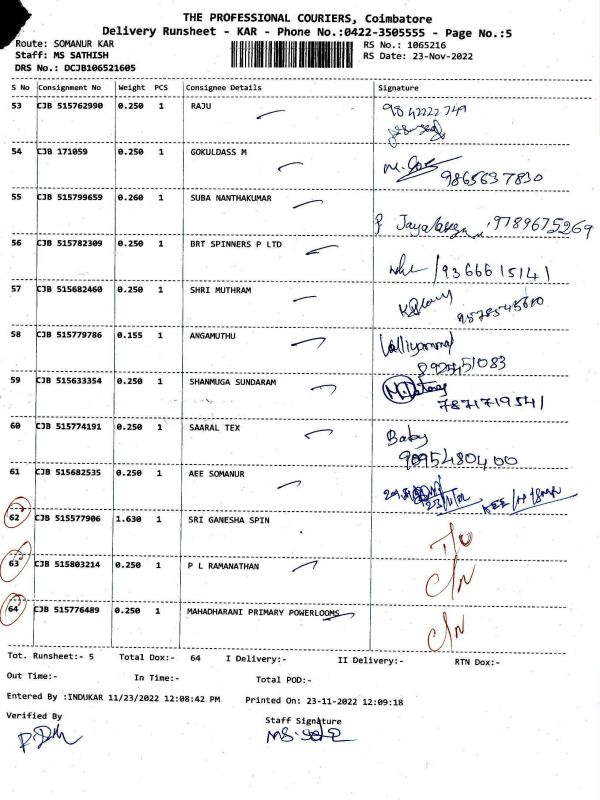 THE PROFESSIONAL COURIERS, Coimbatore
Delivery Runsheet - KAR - Phone No.:0422-3505555 - Page No.:5
Route: SOMANUR KAR RS No.: 1065216
Staff: MS SATHISH RS Date: 23-Nov-2022
DRS No.: DCJB106521605
S No Consignment No Weight PCS Consignee Details Signature
53 CJB 515762990 0.250 1 RAJU 9842222749
54 CJB 171059 0.250 1 GOKULDASS M
9865637830
55 CJB 515799659 0.260 1 SUBA NANTHAKUMAR
9789675269
56 CJB 515782309 0.250 1 BRT SPINNERS P LTD
9366615141
57 CJB 515682460 0.250 1 SHRI MUTHRAM
58 CJB 515779786 0.155 1 ANGAMUTHU
59 CJB 515633354 0.250 1 SHANMUGA SUNDARAM
7871719541
60 CJB 515774191 0.250 1 SAARAL TEX Baby
9095480400
61 CJB 515682535 0.250 1 AEE SOMANUR
62 CJB 515577906 1.630 1 SRI GANESHA SPIN
63 CJB 515803214 0.250 1 P L RAMANATHAN C/N
64 CJB 515776489 0.250 1 MAHADHARANI PRIMARY POWERLOOMS C/N
Tot. Runsheet:- 5 Total Dox:- 64 I Delivery:- II Delivery:- RTN Dox:-
Out Time:- In Time:- Total POD:-
Entered By :INDUKAR 11/23/2022 12:08:42 PM Printed On: 23-11-2022 12:09:18
Verified By Staff Signature